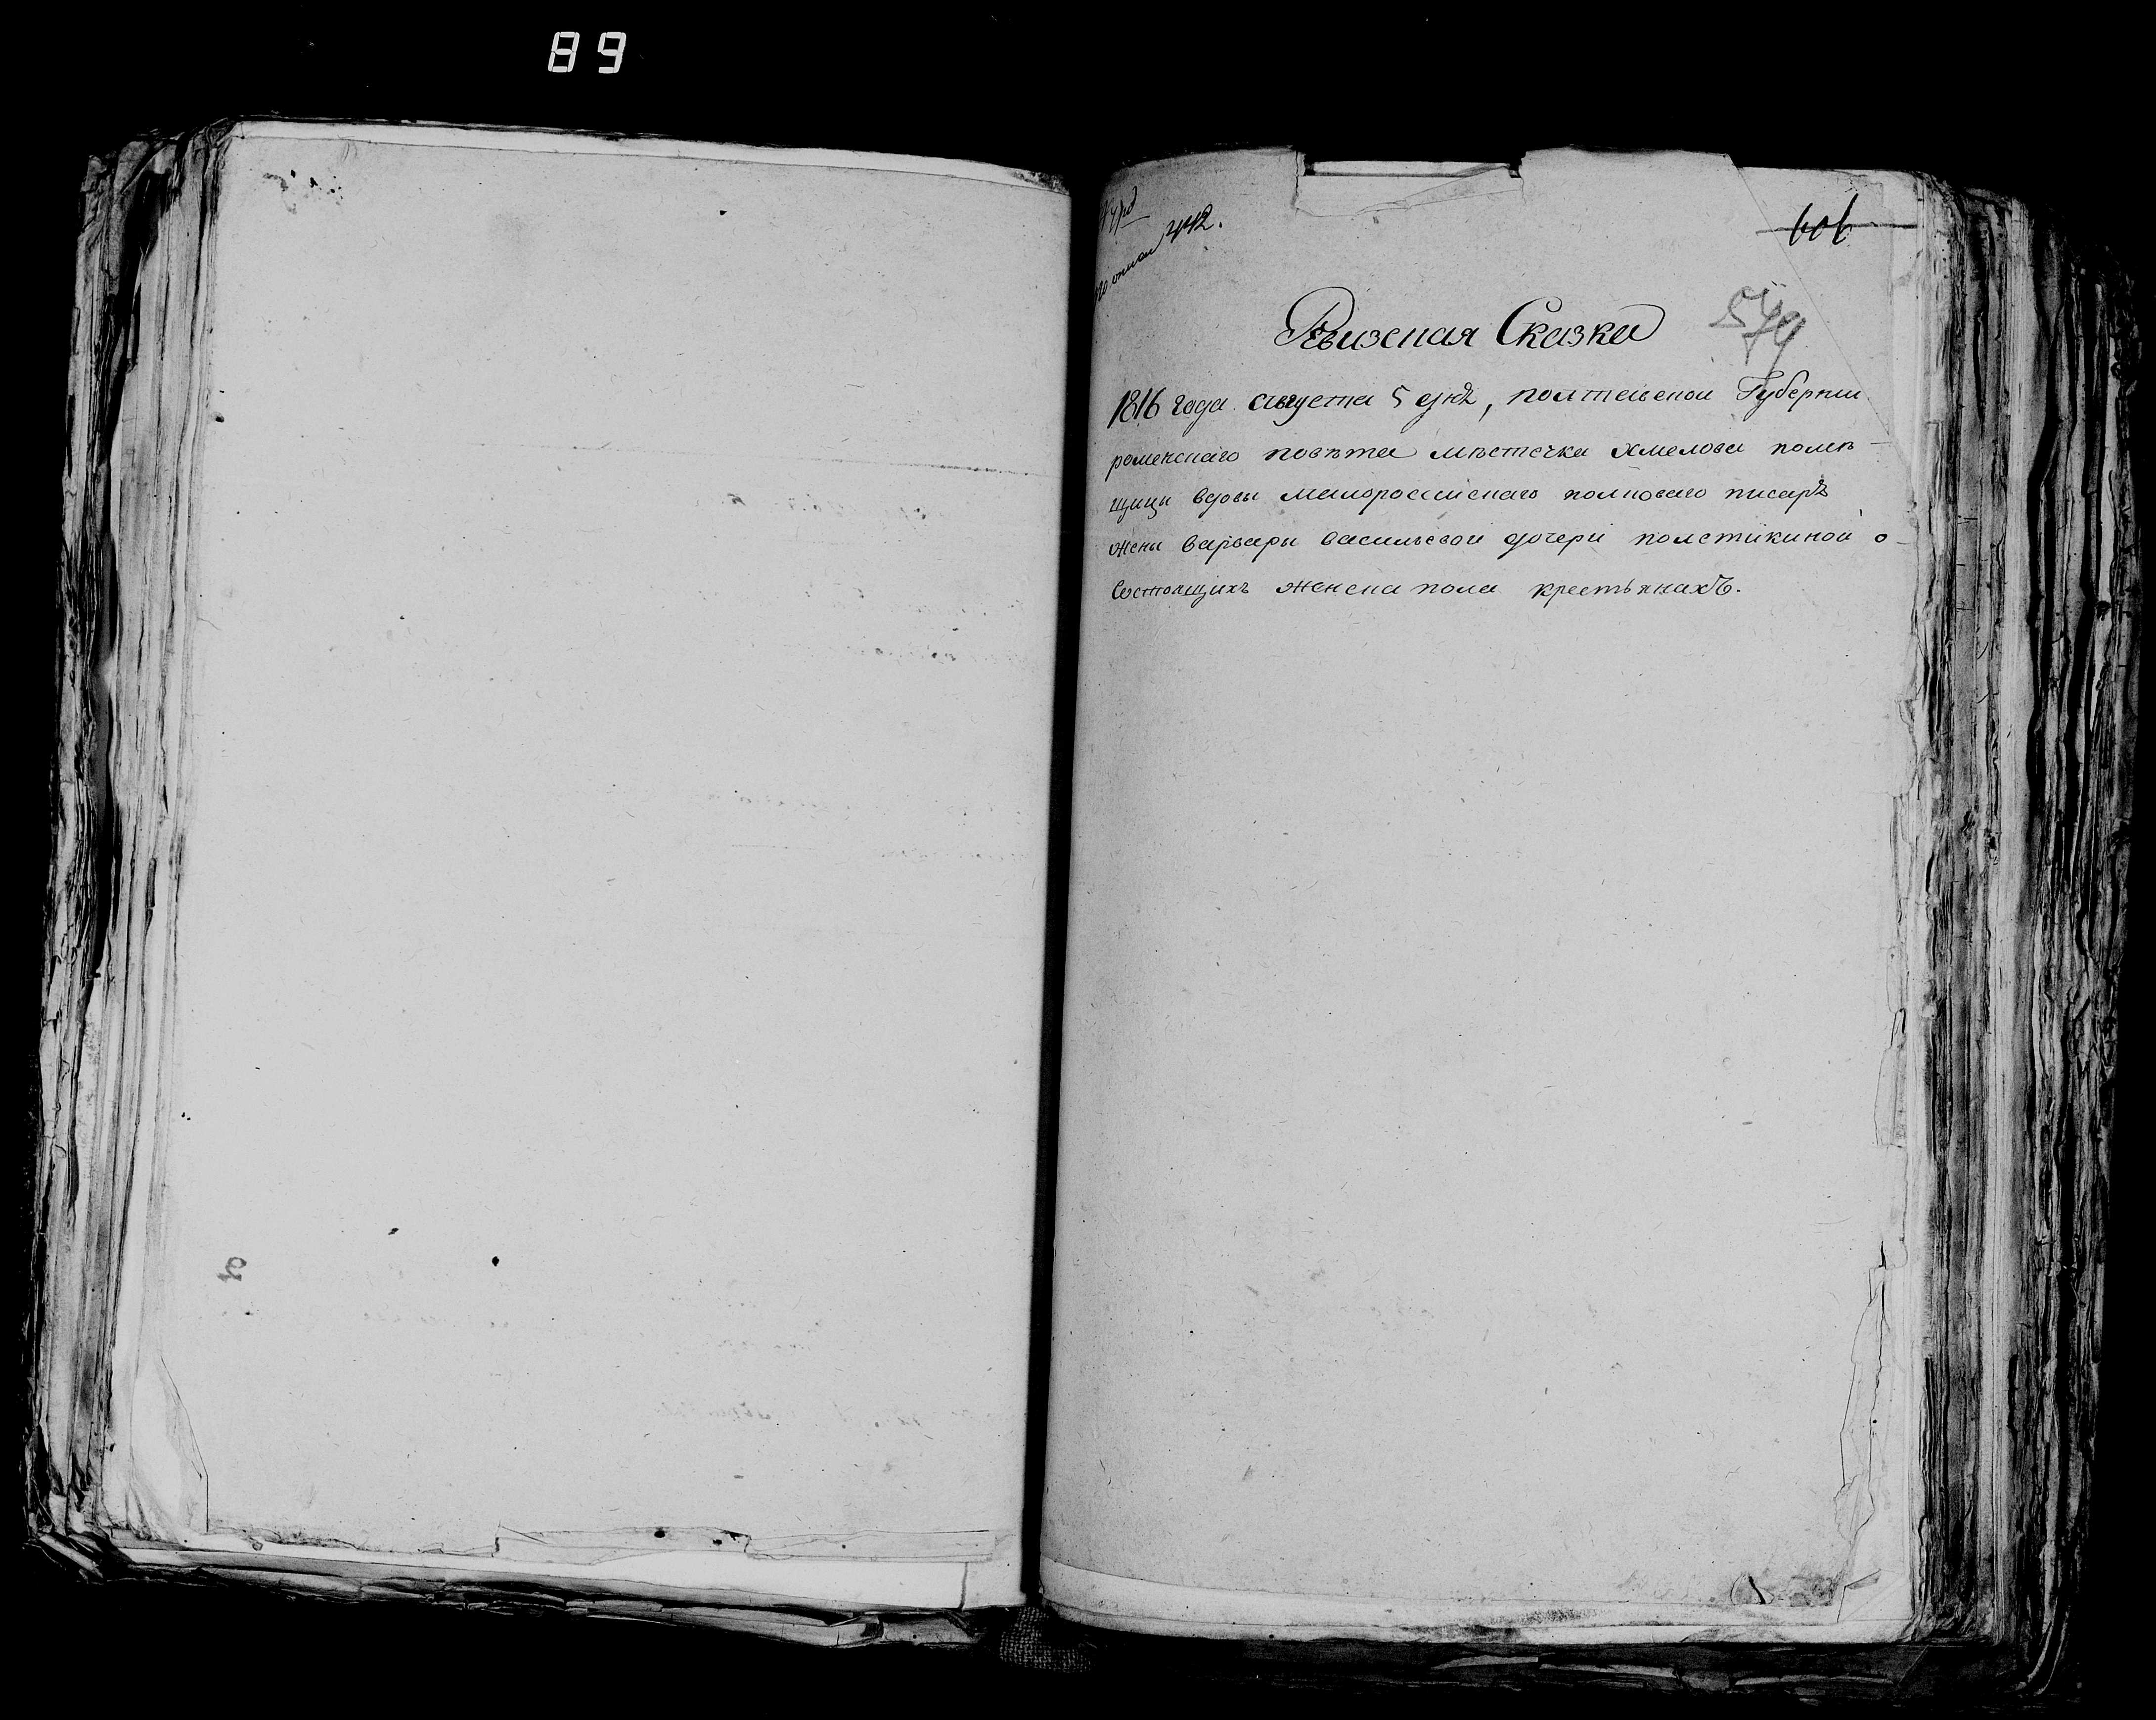 89
по описи 442.
606
579
Ревизская Сказка
1816 года августа 5 дня, полтавской Губернии
роменскаго повѣта мѣстечка хмелова помѣ-
щицы вдовы малороссийскаго полковаго писаря
жены варвары васильевой дочери полетикиной о
состоящихъ женска пола крестьянахъ.